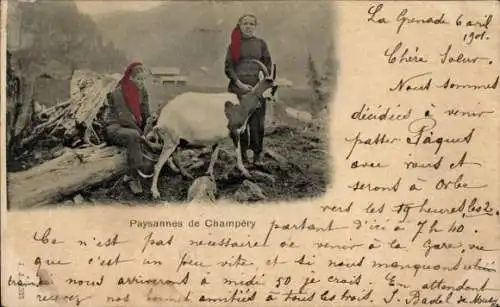 La Grenade 6 avril
1901.
Chère Soeur.
Nous sommes
décidées à venir
passer Pâques
avec vous et
serons à Orbe
vers les 19 heures
Paysannes de Champéry
partant d'ici à 7h 40.
Ce n'est pas nécessaire de venir à la Gare, vu
que c'est un peu vite et si nous manquons
train nous arriverons à midi 50 je crois. En attendant
recevez nos bonnes amitiés à tous les trois